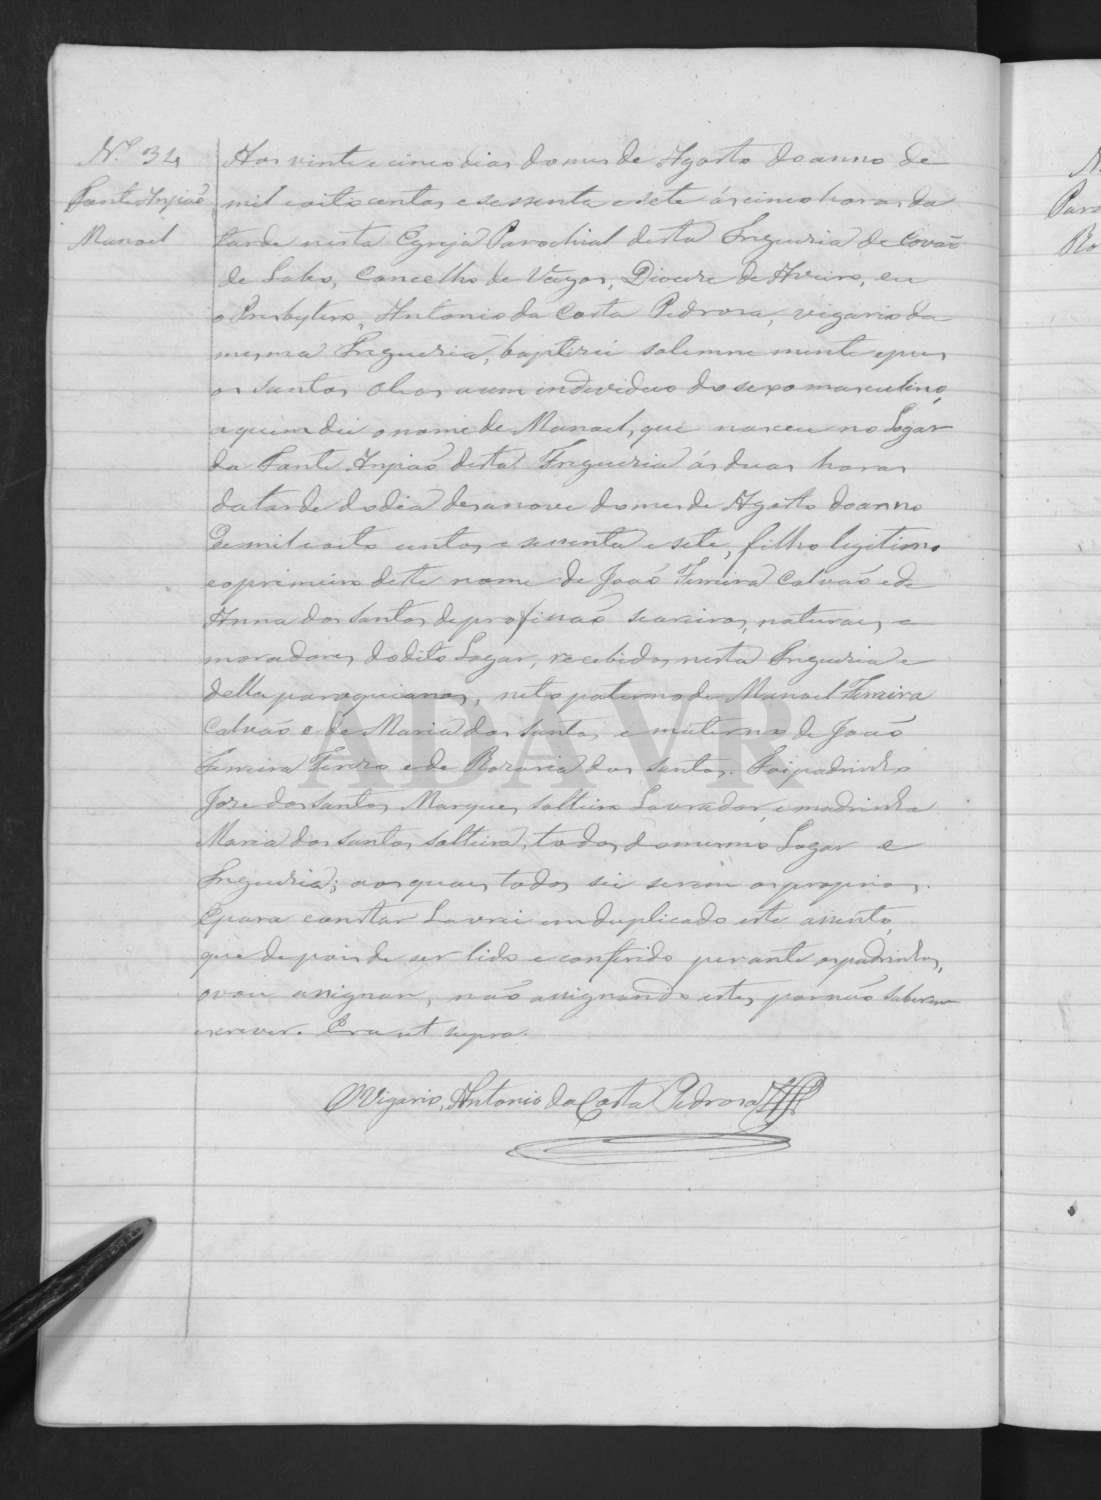 Nº 34
Fonte Anjiaõ
Manoel
Aos vinte e cinco dias do mes de Agosto do anno de
mil e oito centos e sessenta e sete ás cinco horas da
tarde nesta Egreja Parochial desta Freguezia de Covaõ
de Lobo, Concelho de Vagos, Diocese de Aveiro, eu
o Presbytero, Antonio da Costa Pedrosa, vigario da
mesma Freguezia, baptizei solemne mente e pus
os santos oleos a um individuo do sexo masculino,
a quem dei o nome de Manoel, que nasceu no Logar
da Fonte Anjiaõ desta Freguezia ás duas horas
da tarde do dia desanove do mes de Agosto do anno
de mil e oito centos e sessenta e sete, filho legitimo
e o primeiro deste nome de Joaõ Ferreira Calvaõ e de
Anna dos Santos de profissaõ seareiros, naturaes e
moradores do dito Logar, recebidos nesta Freguezia e
della paroquianos, neto paterno de Manoel Ferreira
Calvaõ e de Maria dos Santos e materno de Joaõ
Ferreira e de Rozaria dos Santos. Foi padrinho
Joze dos Santos Marques solteiro Lavrador, e madrinha
Maria dos Santos solteira, todos do mesmo Logar e
Freguezia; aos quaes todos sei serem os proprios.
E para constar Lavrei em duplicado este assento,
que depois de ser lido e conferido perante os padrinhos,
o vou assignar, naõ assignando estes por naõ saberem
escrever. Era ut supra.
O Vigario, Antonio da Costa Pedrosa
ADAVR